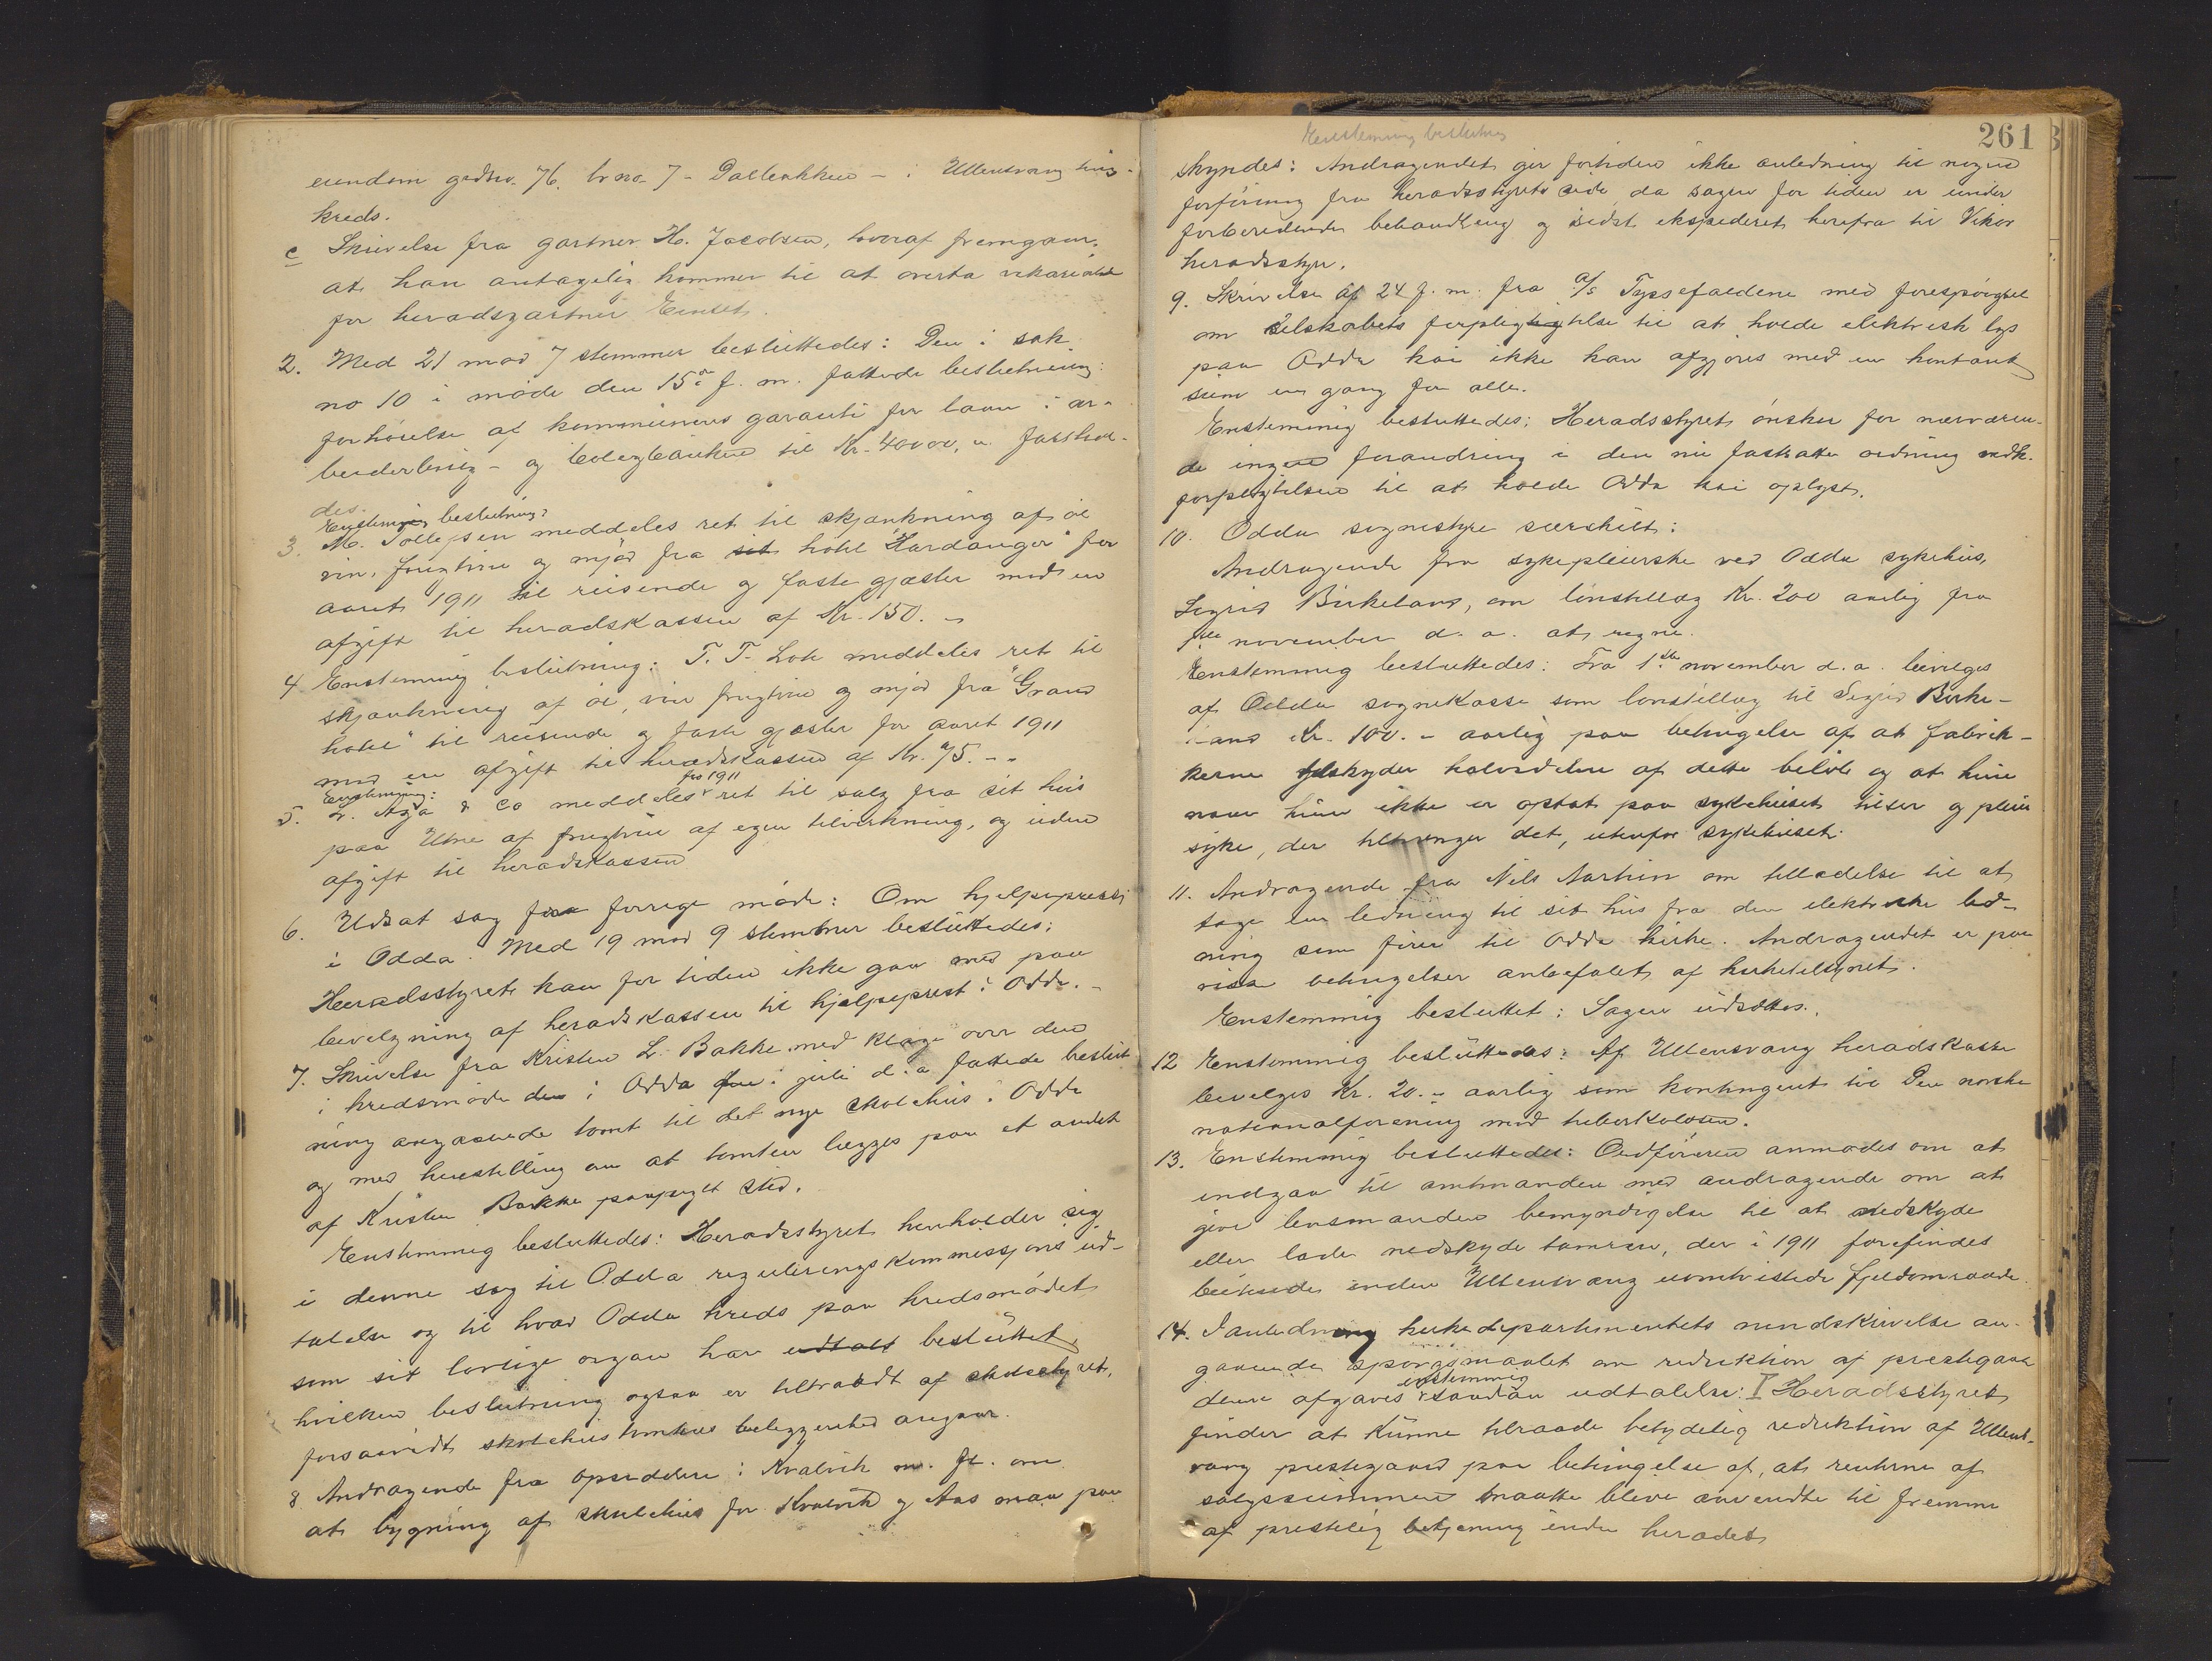 eiendom grdsno. 76. brno. 7 - Dalbakken - i Ullensvang ting-
kreds.
c Skrivelse fra gartner H. Jacobsen, hvoraf fremgaar,
at han antagelig kommer til at overta vikariatet
for heradsgartner Einset.
2. Med 21 mod 7 stemmer besluttedes: Den i sak
no 10 i møde den 15de f. m. fattede beslutning:
forhøielse af kommunens garanti for laan i ar-
beiderbrug- og boligbanken til Kr. 40000, fasthol-
des.
Enstemmig beslutning:
3. M. Tollefsen meddeles ret til skjænkning af øl
vin, frugtvin og mjød fra sit hotel "Hardanger" for
aaret 1911 til reisende og faste gjæster mod en
afgift til heradskassen af Kr. 150. -
4 Enstemmig beslutning: T. T. Lote meddeles ret til
skjænkning af øl, vin frugtvin og mjød fra "Grand
hotel" til reisende og faste gjæster for aaret 1911
mod en afgift til heradskassen af Kr. 75. - -
Enstemmig: for 1911
5. L. Aga & Co meddeles ret til salg fra sit hus
paa Utne af frugtvin af egen tilvirkning, og uden
afgift til heradskassen
6. Udsat sag fra forrige møde: Om hjelpeprest
i Odda. Med 19 mod 9 stemmer besluttedes:
Heradsstyret kan for tiden ikke gaa med paa
bevilgning af heradskassen til hjelpeprest i Odda. -
7. Skrivelse fra Kristen L. Bakke med klage over den
i kredsmøde den i Odda i juli d. a. fattede beslut-
ning angaaende tomt til det nye skolehus i Odda
og med henstilling om at tomten lægges paa et andet
af Kristen Bakke paapeget sted.
Enstemmig besluttedes: Heradsstyret henholder sig
i denne sag til Odda reguleringskommissjons ud-
talelse og til hvad Odda kreds paa kredsmødet
som sit lovlige organ har udtalt besluttet
hvilken beslutning ogsaa er tiltraadt af skolestyret,
forsaavidt skolehustomtens beliggenhed angaar.
8 Andragende fra opsiddere i Kvalvik m. fl. om
at bygning af skolehus for Kvalvik og Aas maa paa
261
Enstemmig besluttes
skyndes: Andragendet gir fortiden ikke anledning til nogen
forføining fra heradsstyrets side, da sagen for tiden er under
forberedende behandling og sidst ekspederet herfra til Vikør
heradsstyre.
9. Skrivelse af 24 f. m. fra A/S Tyssefaldene med forespørgsel
om selskabets forpligtelse til at holde elektrisk lys
paa Odda kai ikke kan afgjøres med en kontant
sum en gang for alle.
Enstemmig besluttedes: Heradsstyret ønsker for nærværen-
de ingen forandring i den nu fastsatte ordning vedk.
forpligtelsen til at holde Odda kai oplyst.
10. Odda sognestyre særskilt:
Andragende fra sykepleierske ved Odda sykehus,
Sigrid Birkeland, om lønstillæg Kr. 200 aarlig fra
1ste november d. a. at regne.
Enstemmig besluttedes: Fra 1ste november d. a. bevilges
af Odda sognekasse som lønstillæg til Sigrid Birke-
land Kr. 100. - aarlig paa betingelse af at fabrik-
kerne tilskyder halvdelen af dette beløb og at hun
naar hun ikke er optat paa sykehuset tilser og pleier
syke, der tiltrænger det, utenfor sykehuset.
11. Andragende fra Nils Aartun om tilladelse til at
tage en ledning til sit hus fra den elektriske led-
ning som fører til Odda kirke. Andragendet er paa
visse betingelser anbefalet af kirketilsynet.
Enstemmig besluttet: Sagen udsættes.
12 Enstemmig besluttedes: Af Ullensvang heradskasse
bevilges Kr. 20. - aarlig som kontingent til Den norske
nationalforening mod tuberkulosen.
13. Enstemmig besluttedes: Ordføreren anmodes om at
indgaa til amtmanden med andragende om at
give lensmanden bemyndigelse til at nedskyde
eller lade nedskyde tamren, der i 1911 forefindes
beitende inden Ullensvang uomtvistede fjeldomraade
14. I anledning kirkedepartementets rundskrivelse an-
gaaende spørgsmaalet om reduktion af prestegaar
dene afgaves enstemmig saadan udtalelse: I Heradsstyret
finder at kunne tilraade betydelig reduktion af Ullens-
vang prestegaard paa betingelse af, at renterne af
salgssummen maatte bleve anvendte til fremme
af prestelig betjening inden heradet